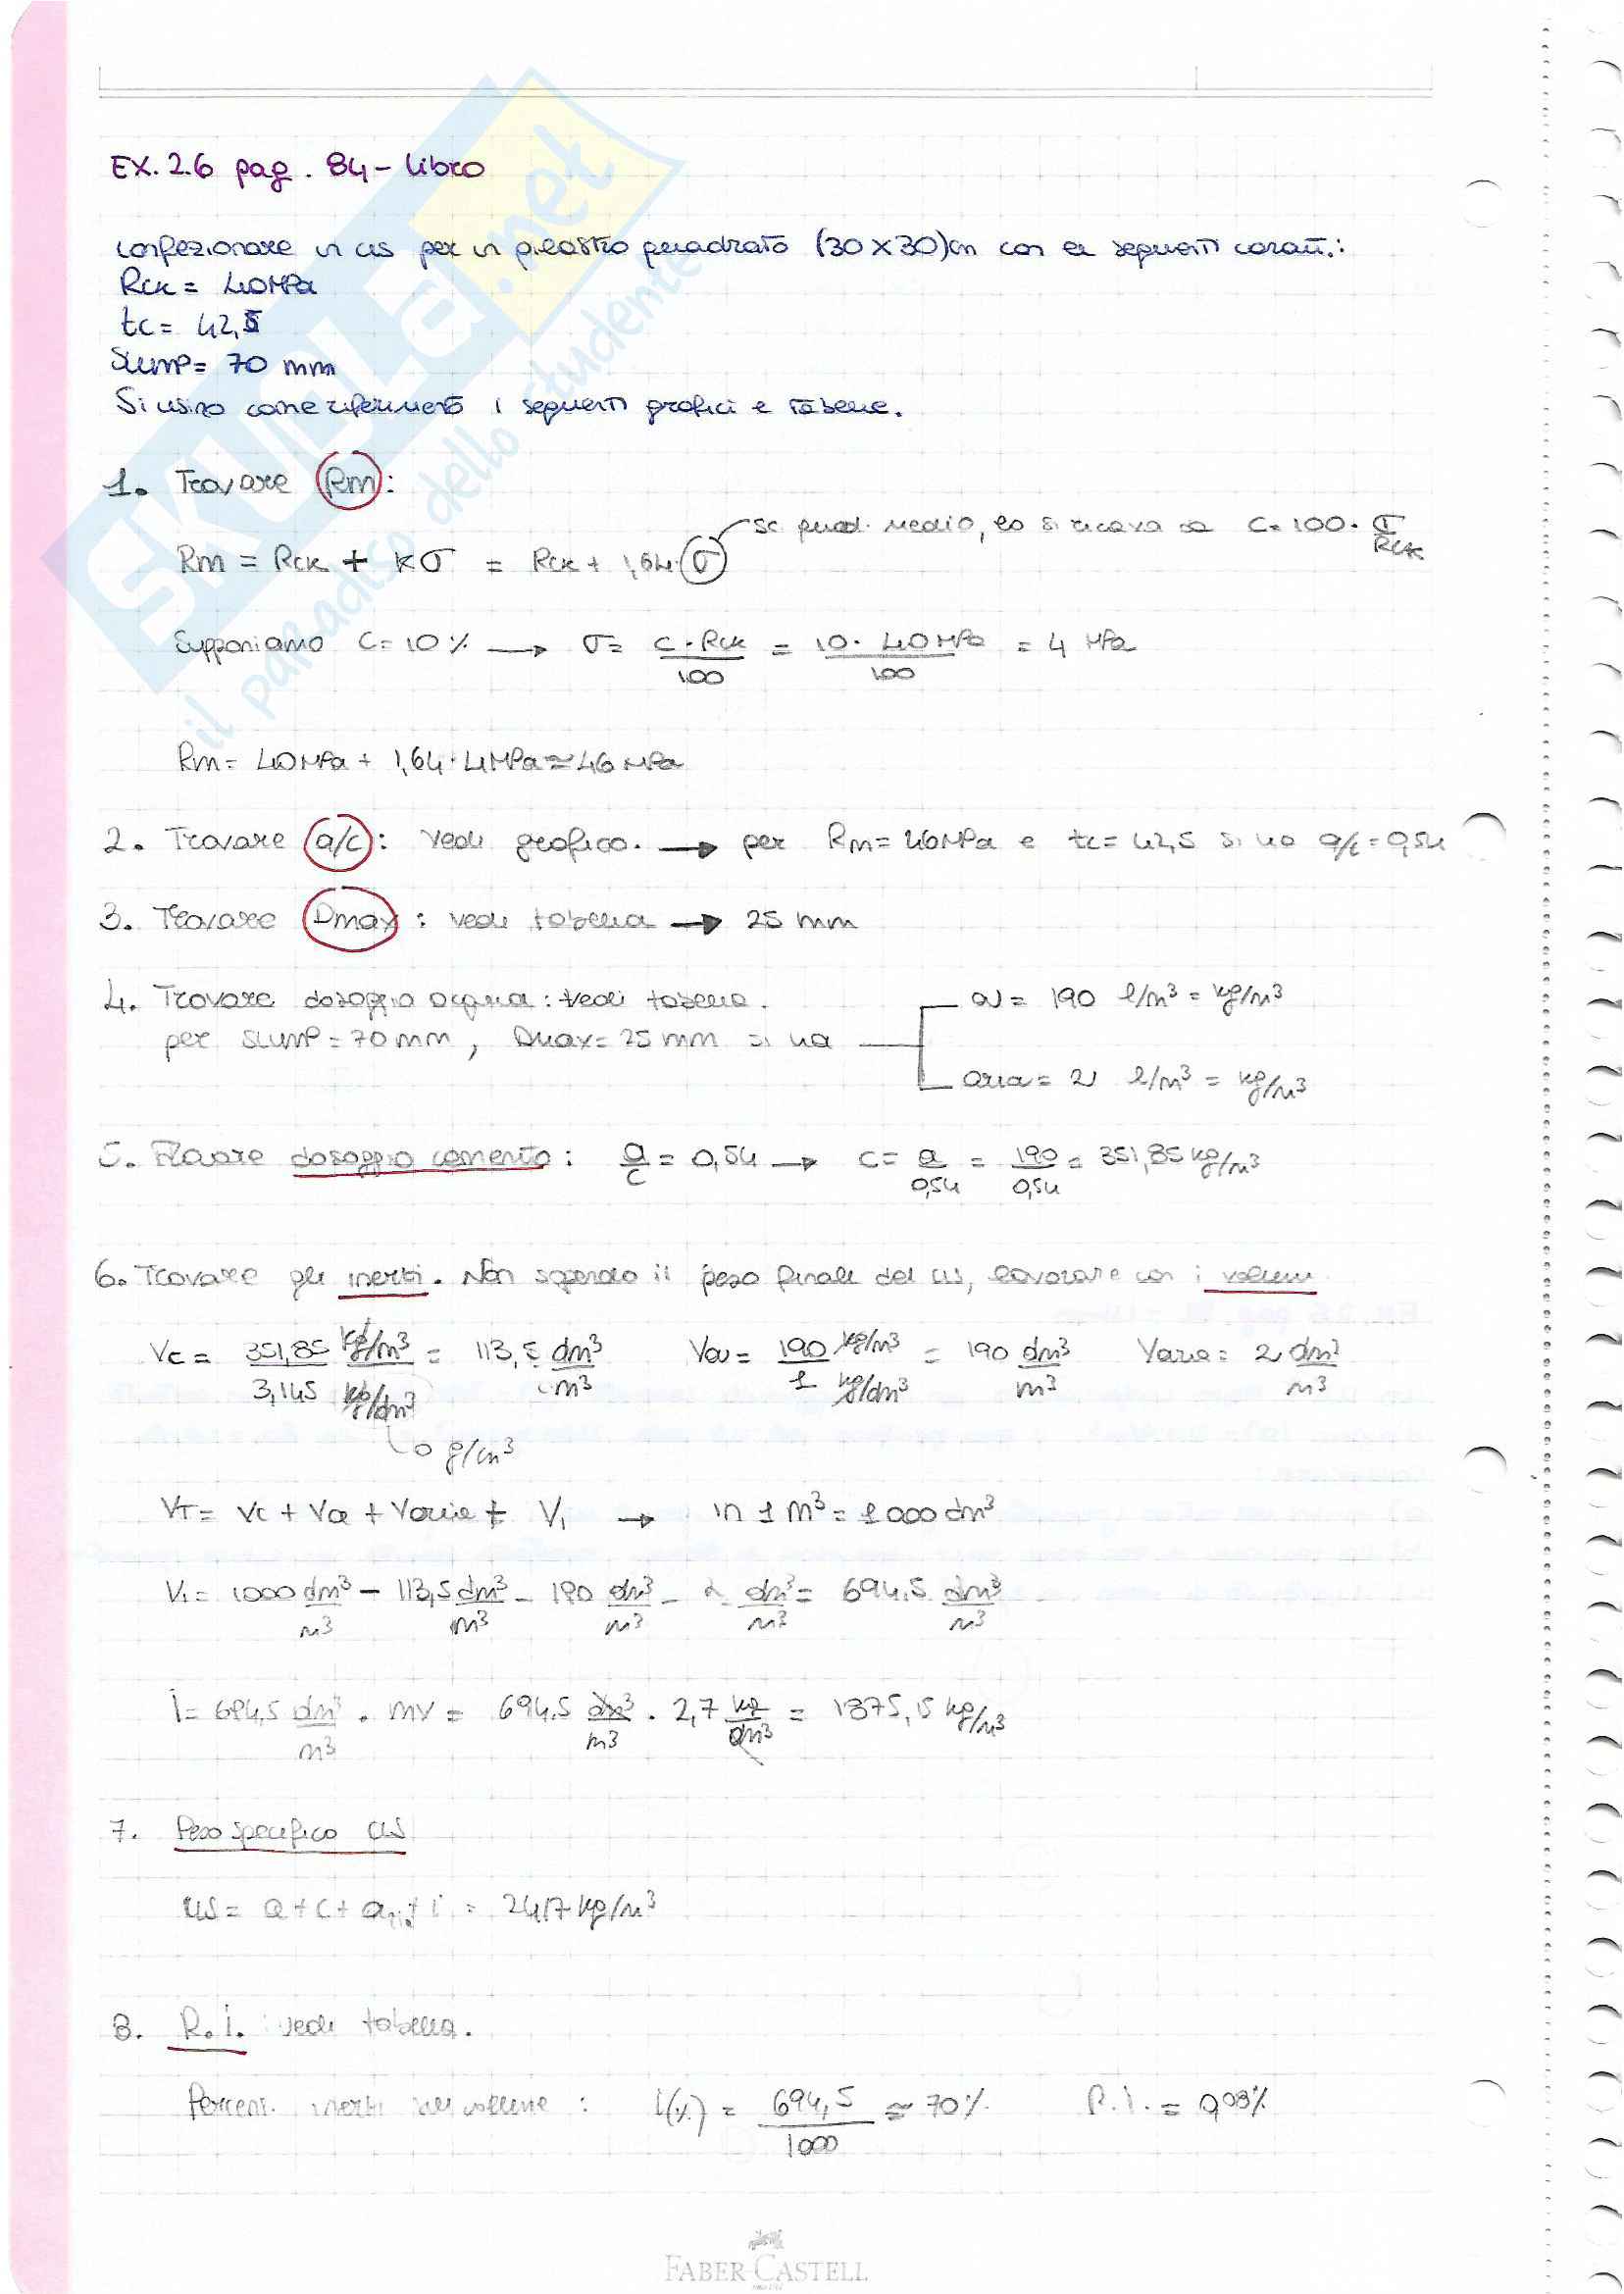 EX. 2.6 pag. 84 - libro
confezionare un cls per un pilastro quadrato (30 x 30)cm con le seguenti caratt.:
Rck = 40MPa
tc = 42,5
SLUMP = 70 mm
Si usino come riferimento i seguenti grafici e tabelle.
1. Trovare Rm:
sc. quad. medio, lo si ricava da C = 100 · σ/Rck
Rm = Rck + Kσ = Rck + 1,64·σ
Supponiamo C = 10% → σ = C·Rck/100 = 10·40MPa/100 = 4 MPa
Rm = 40MPa + 1,64·4MPa ≃ 46 MPa
2. Trovare a/c : vedi grafico. → per Rm = 46MPa e tc = 42,5 si ha a/c = 0,54
3. Trovare Dmax : vedi tabella → 25 mm
4. Trovare dosaggio acqua : vedi tabella.
per SLUMP = 70 mm, Dmax = 25 mm si ha
a = 190 l/m³ = kg/m³
aria = 2 l/m³ = kg/m³
5. Trovare dosaggio cemento : a/c = 0,54 → c = a/0,54 = 190/0,54 = 351,85 kg/m³
6. Trovare gli inerti. Non sapendo il peso finale del cls, lavorare con i volumi
Vc = 351,85 kg/m³ / 3,145 kg/dm³ = 113,5 dm³/m³ Va = 190 kg/m³ / 1 kg/dm³ = 190 dm³/m³ Varia = 2 dm³/m³
g/cm³
VT = Vc + Va + Varia + Vi → in 1 m³ = 1000 dm³
Vi = 1000 dm³/m³ - 113,5 dm³/m³ - 190 dm³/m³ - 2 dm³/m³ = 694,5 dm³/m³
i = 694,5 dm³/m³ · mv = 694,5 dm³/m³ · 2,7 kg/dm³ = 1875,15 kg/m³
7. Peso specifico cls
cls = a + c + ari + i = 2417 kg/m³
8. R.i. : vedi tabella.
Percent. inerti nel volume : i(%) = 694,5/1000 ≃ 70% R.i. = 0,03%
FABER-CASTELL
SKUOLA.net
il paradiso dello studente